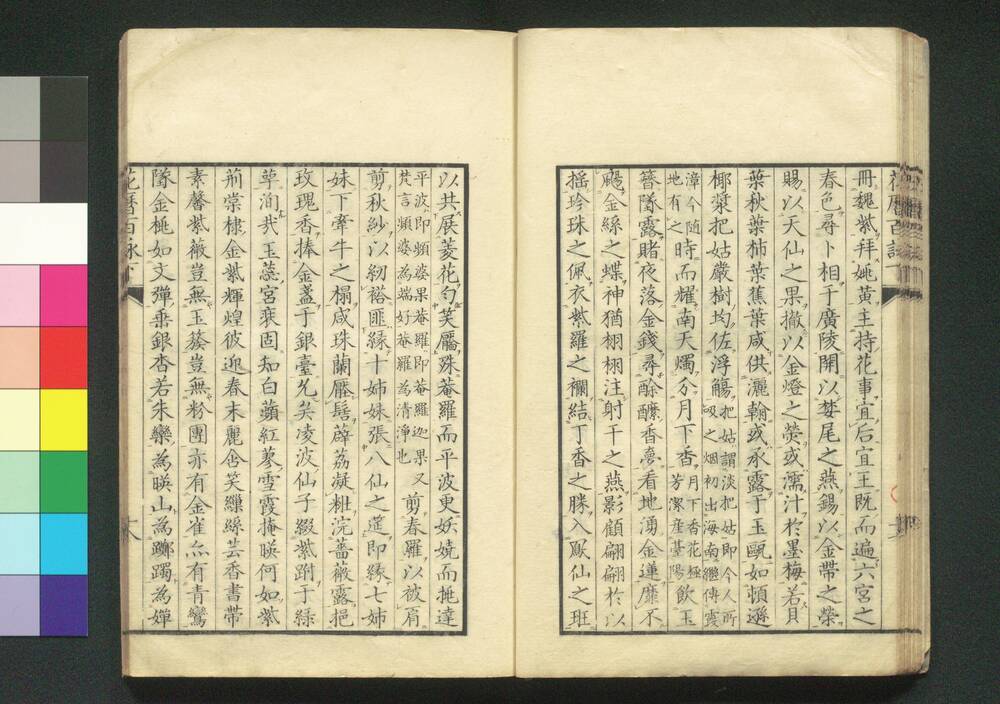 冊魏紫拜姚黃主持花事宜后宜王既而遍六宮之
春色尋卜相于廣陵開以婪尾之燕錫以金帶之榮
賜以天仙之果撤以金燈之熒或濡汁於墨梅若貝
葉秋葉柿葉蕉葉咸供灑翰或承露于玉甌如頓遜
椰漿把姑嚴樹均佐浮觴把姑謂淡把姑即今人所
吸之烟初出海南繼傳霞
漳今隨
地有之時而耀南天燭分月下香月下香花極
芳潔産臺陽飲玉
簪墜露賭夜落金錢尋酴醾香夢看地湧金蓮靡不
颺金絲之蝶神猶栩栩注射干之燕影顧翩翩於以
搖玲珠之佩衣紫羅之襴結丁香之縢入鳳仙之班
以共展菱花勺笑靨殊菴羅而平波更妖嬈而挻達
平波即頻婆果菴羅即菴羅迦果又
梵言頻婆為端好菴羅為清淨也剪春羅以被肩
剪秋紗以紉褣匪緣十姊妹張八仙之筵即緣七姊
妹下牽牛之榻咸珠蘭壓髻薜荔凝粧浣薔薇露挹
玫瑰香捧金盞于銀臺允矣凌波仙子綴紫跗于綠
萼洵哉玉蕊宮裏固知白蘋紅蓼雪霞掩暎何如紫
荊棠棣金紫輝煌彼迎春末麗含笑繅絲芸香書帶
素馨紫薇豈無玉蔟豈無粉團亦有金雀亦有青鸞
隊金桃如文彈乘銀杏若朱欒為暎山為躑躅為嬋
花曆百詠